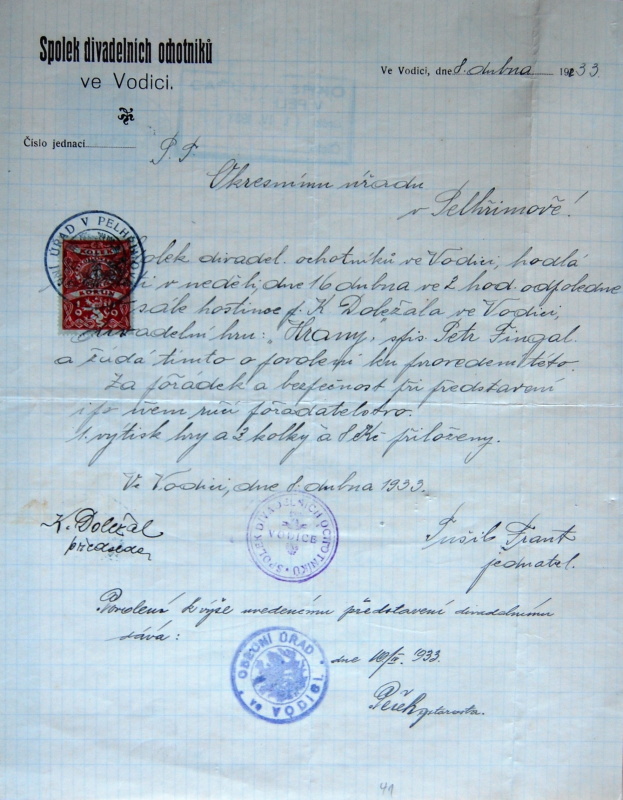 Spolek divadelních ochotníků
ve Vodici.
Ve Vodici, dne 8. dubna 1933.
Číslo jednací
P. T.
Okresnímu úřadu
v Pelhřimově!
Spolek divadel. ochotníků ve Vodici, hodlá
v neděli, dne 16 dubna ve 2 hod. odpoledne
sále hostince p. K Doležala ve Vodici,
divadelní hru: "Hrany," spis. Petr Fingal.
a žádá tímto o povolení ku provedení této.
Za pořádek a bezpečnost při představení
i po něm ručí pořadatelstvo.
1 výtisk hry a 2 kolky à 8 Kč přiloženy.
Ve Vodici, dne 8. dubna 1933.
K. Doležal
předseda
Frant
jednatel.
SPOLEK DIVADELNÍCH OCHOTNÍKŮ
VODICE
NÍ ÚŘAD V PELHŘIMOVĚ
KOLEK
5
Povolení k výše uvedenému představení divadelnímu
dává:
OBECNÍ ÚŘAD
ve VODICI
dne 10/IV. 1933.
starosta.
41